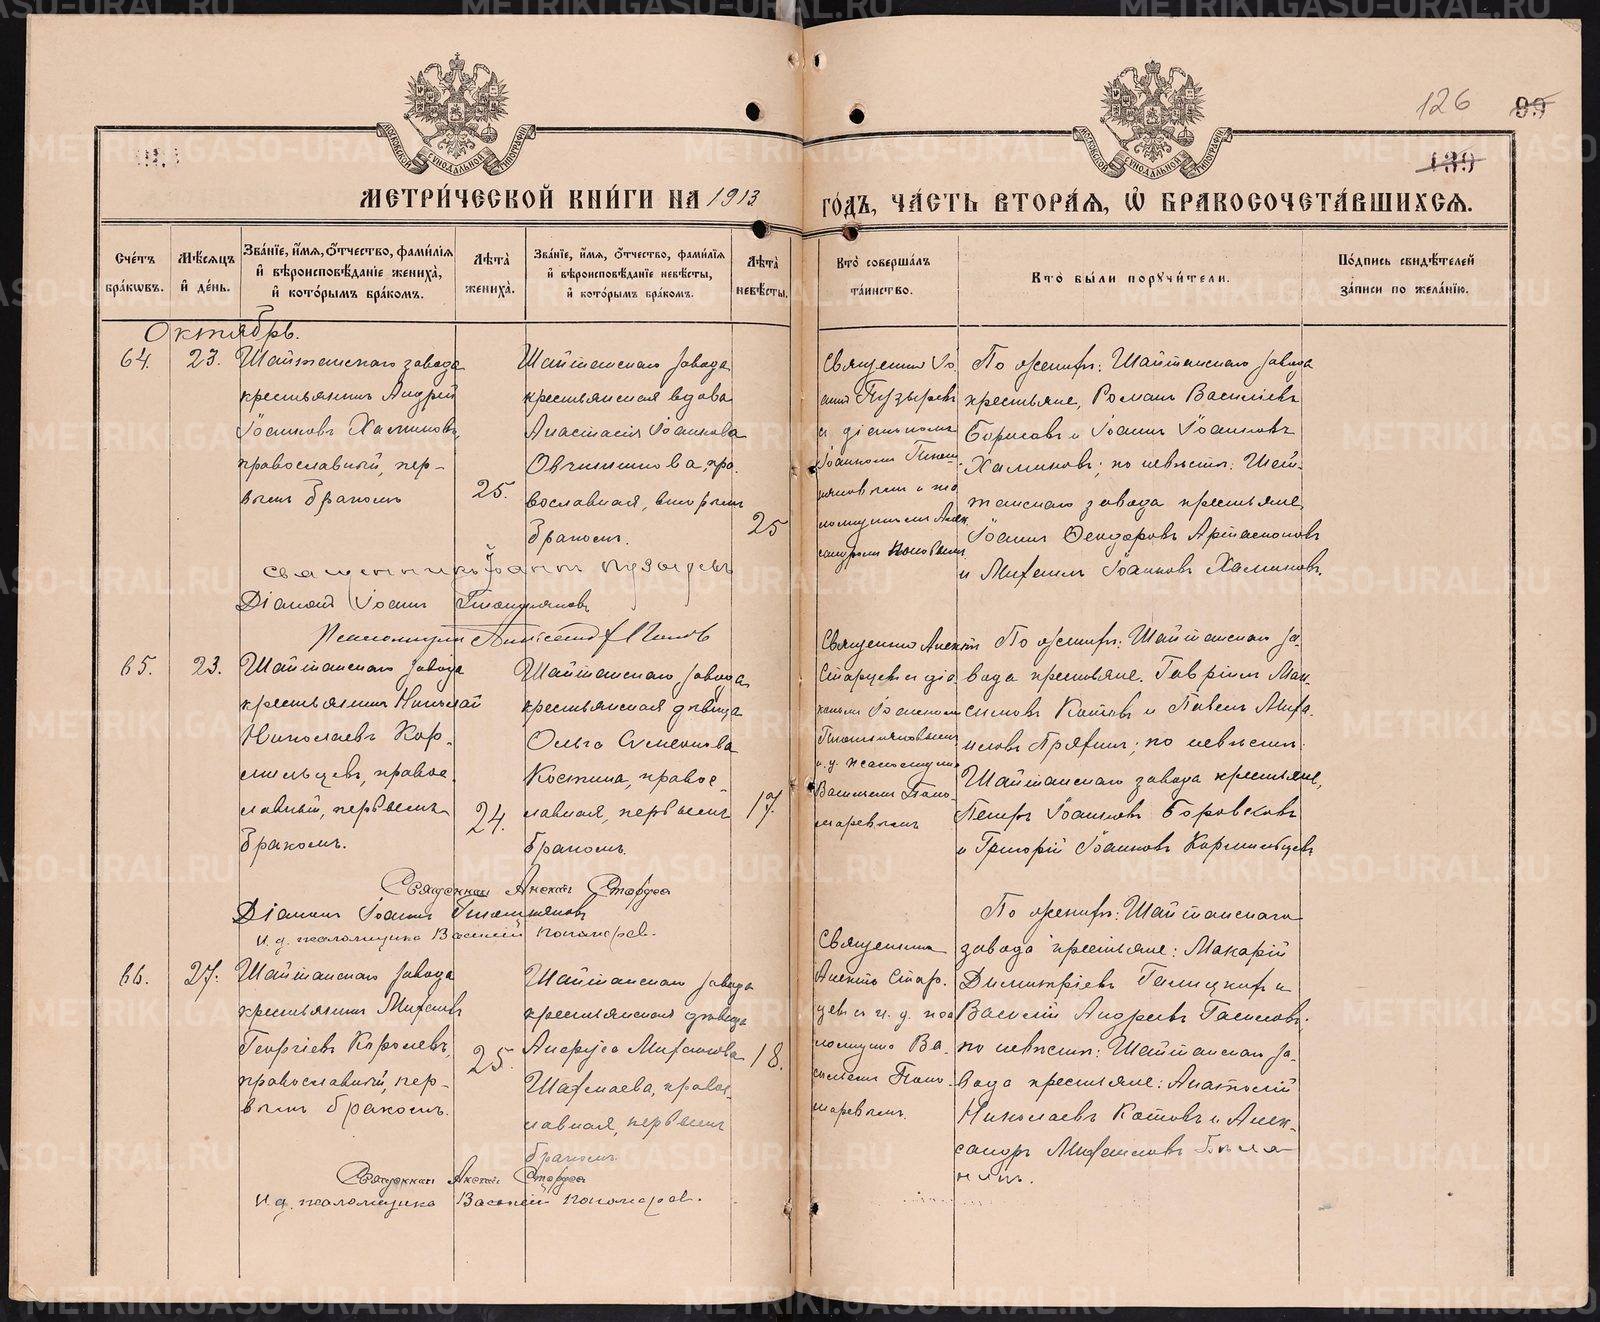 126
99
139
МЕТРИ́ЧЕСКОЙ КНИ́ГИ НА 1913
ГО́ДЪ, ЧА́СТЬ ВТОРА́Я, Ѡ҆ БРАКОСОЧЕТА́ВШИХСЯ.
Сче́тъ бра́кѡвъ.
Мѣ́сяцъ и҆ де́нь.
Зва́нїе, и҆́мя, ѻ҆́тчество, фами́лїя
и҆ вѣроисповѣ́данїе жениха̀,
и҆ кото́рымъ бра́комъ.
Лѣта̀ жениха̀.
Зва́нїе, и҆́мя, ѻ҆́тчество, фами́лїя
и҆ вѣроисповѣ́данїе невѣ́сты,
и҆ кото́рымъ бра́комъ.
Лѣта̀ невѣ́сты.
Кто̀ соверша́лъ
та́инство.
Кто̀ бы́ли порꙋчи́тели.
По́дпись свидѣ́телей
за́писи по жела́нїю.
Октябрь.
64.
23.
Шайтанскаго завода
крестьянинъ Андрей
Іоанновъ Халтиновъ,
православный, пер-
вымъ бракомъ
25.
Шайтанскаго завода
крестьянская вдова
Анастасія Іоаннова
Овчинникова, пра-
вославная, вторымъ
бракомъ.
25
Священникъ Іо-
аннъ Пузыревъ
съ діакономъ
Іоанномъ
По женихѣ: Шайтанскаго завода
крестьяне, Романъ Василіевъ
Борисовъ и Іоаннъ Іоанновъ
; по невѣстѣ: Шай-
танскаго завода крестьяне
Іоаннъ Ѳеодоровъ Артамоновъ
и Михаилъ Іоанновъ
священникъ Іоаннъ Пузыревъ
Діаконъ Іоаннъ
Псаломщикъ
65.
23.
Шайтанскаго завода
крестьянинъ Николай
Николаевъ Кор-
мильцевъ, правос-
лавный, первымъ
бракомъ.
24.
Шайтанскаго завода
крестьянская дѣвица
Ольга Симеонова
Костина, правос-
лавная, первымъ
бракомъ.
17.
Священникъ Алексѣй
Старцевъ съ діа-
кономъ Іоанномъ
и. д. псаломщика
Василіемъ Поно-
маревымъ
По женихѣ: Шайтанскаго за-
вода крестьяне: Гавріилъ Мак-
симовъ Котовъ и Павелъ Миха-
иловъ Пряхинъ; по невѣстѣ:
Шайтанскаго завода крестьяне,
Петръ Іоанновъ Боровсковъ
и Григорій Іоанновъ Кормильцевъ
Священникъ Алексѣй Старцевъ
Діаконъ Іоаннъ
И. д. псаломщика Василій Пономаревъ.
66.
27.
Шайтанскаго завода
крестьянинъ Михаилъ
Георгіевъ Королевъ,
православный, пер-
вымъ бракомъ.
25.
Шайтанскаго завода
крестьянская дѣвица
Михаилова
Шахмаева, правос-
лавная, первымъ
бракомъ
18.
Священникъ
Алексѣй Стар-
цевъ съ и. д. пса-
ломщика Ва-
силіемъ Поно-
маревымъ.
По женихѣ: Шайтанскаго
завода крестьяне: Макарій
Димитріевъ и
Василій Андреевъ
по невѣстѣ: Шайтанскаго за-
вода крестьяне: Анатолій
Николаевъ Котовъ и Алек-
сандръ Михаиловъ
Священникъ Алексѣй Старцевъ
И. д. псаломщика Василій Пономаревъ.